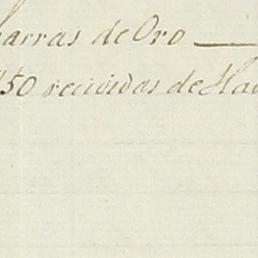 barras de Oro
150 recividas de